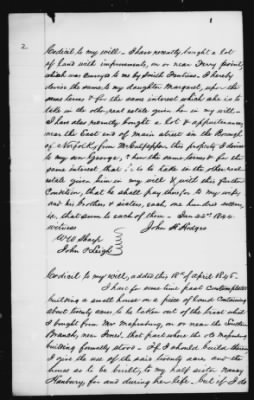 2
Codicil to my will - I have recently bought a lot
of land with improvements, on or near Ferry point,
which was conveyed to me by Smith Pentress. I hereby
devise the same to my daughter Margaret, upon the
same terms & for the same interest which she is to
take in the other real estate given her in my will -
I have also recently bought a lot & appurtenances,
near the East end of main street in the Borough
of Norfolk, from this property I devise
to my son George, & have the same terms & for the
same interest that is to be taken in the other real
estate given him in my will & with this further
Condition, that he shall pay therefor to my wife,
and his brothers & sisters, each one hundred dollars
is, that sum to each of them - Jan 22d 1844.
witness John H Rodges
Wm Sharp
John P Leigh
Codicil to my will, added this 18th of April 1845.
I have for some time past contemplated
building a small house on a piece of land containing
about twenty acres, to be taken out of the tract which
I bought from Mr on or near the Southern
Branch, near Jones', that part where the old
building formerly stood - If I should build there
I give the use of the said twenty acres and the
house so to be built, to my half sister Nancy
Hanbury, for and during her life - but if I do